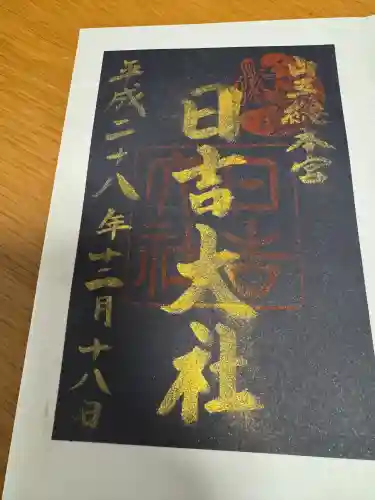 山王総本宮
日吉大社
平成二十八年十二月十八日
日吉大社